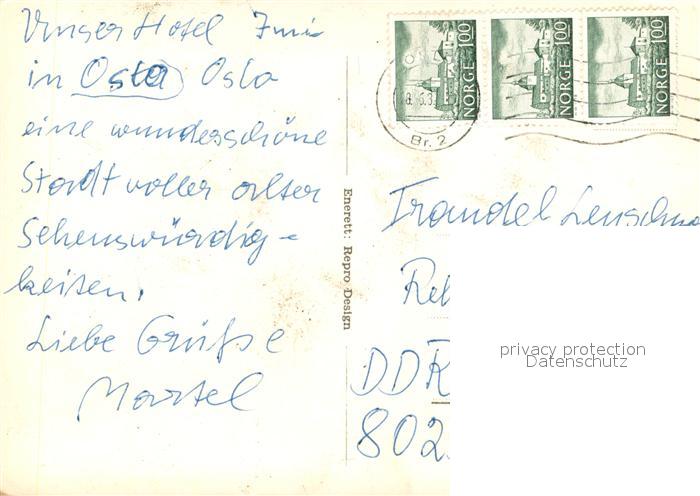 Unser Hotel
in Oslo Oslo
eine wunderschöne
Stadt voller alter
Sehenswürdig-
keiten.
Liebe Grüße
Martel
Enerett: Repro Design
NORGE 100
NORGE 100
NORGE 100
Br. 2
DDR
802
privacy protection
Datenschutz